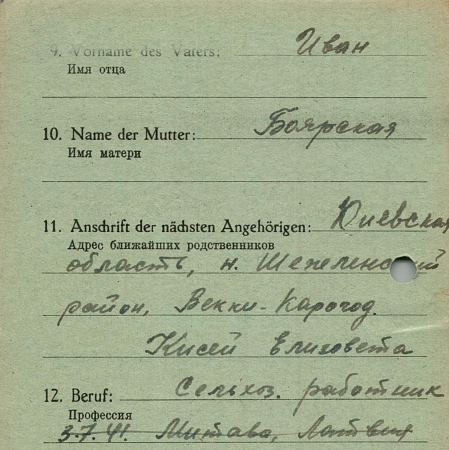 9. Vorname des Vaters: Иван
Имя отца
10. Name der Mutter: Боярская
Имя матери
11. Anschrift der nächsten Angehörigen: Киевская
Адрес ближайших родственников
область, н.
район, Векки-Карогод.
Кисей Елизовета
12. Beruf: Сельхоз. работник
Профессия
3.7.41. Митава, Латвия